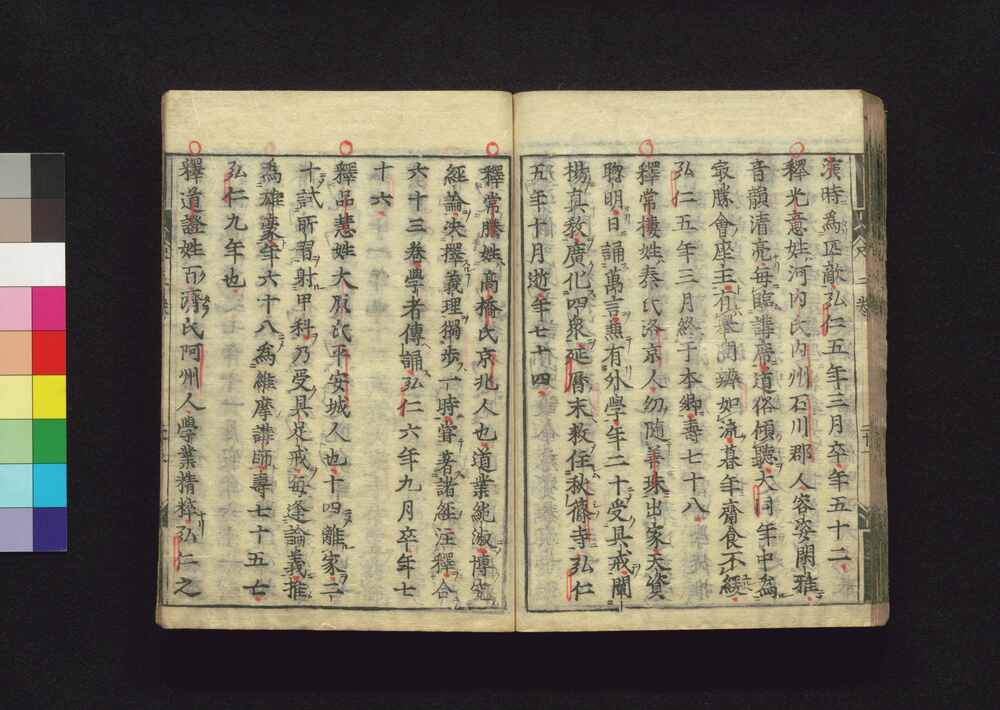 演時為匹敵弘仁五年三月卒年五十二
釋光意姓河内氏内州石川郡人容姿閑雅
音韻清亮每臨講席道俗傾聽大同年中為
最勝會座主有問辨如流暮年齋食不經
弘仁五年三月終于本鄉壽七十八
釋常樓姓秦氏洛京人幼随善珠出家天資
聰明日誦萬言兼有外學年二十受具戒闡
揚真教廣化四衆延曆末敕住秋篠寺弘仁
五年十月逝年七十四
釋常騰姓高橋氏京兆人也道業純淑博究
經論決擇義理獨步一時甞著諸經注釋合
六十三卷學者傳誦弘仁六年九月卒年七
十六
釋品慧姓大原氏平安城人也十四離家二
十試所習射甲科乃受具足戒每逢論義推
為雄豪年六十八為維摩講師壽七十五亡
弘仁九年也
釋道證姓百濟氏阿州人學業精粹弘仁之